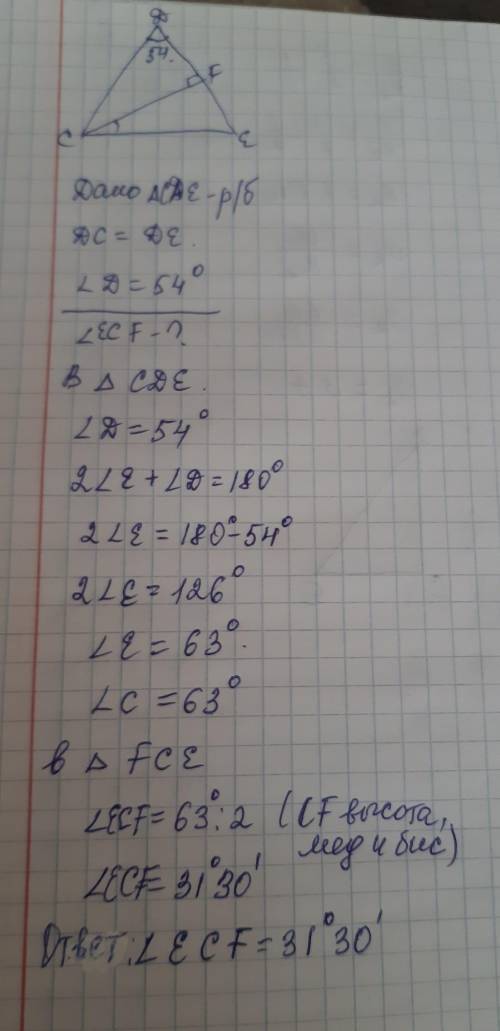 D
54.
F
C
E
Дано △CDE - р/б
DC = DE.
∠D = 54°
∠ECF - ?
В △ CDE.
∠D = 54°
2∠E + ∠D = 180°
2∠E = 180° - 54°
2∠E = 126°
∠E = 63°.
∠C = 63°
В △ FCE
∠ECF = 63° : 2 (CF высота,
мед и бис)
∠ECF = 31°30'
Ответ: ∠ECF = 31°30'